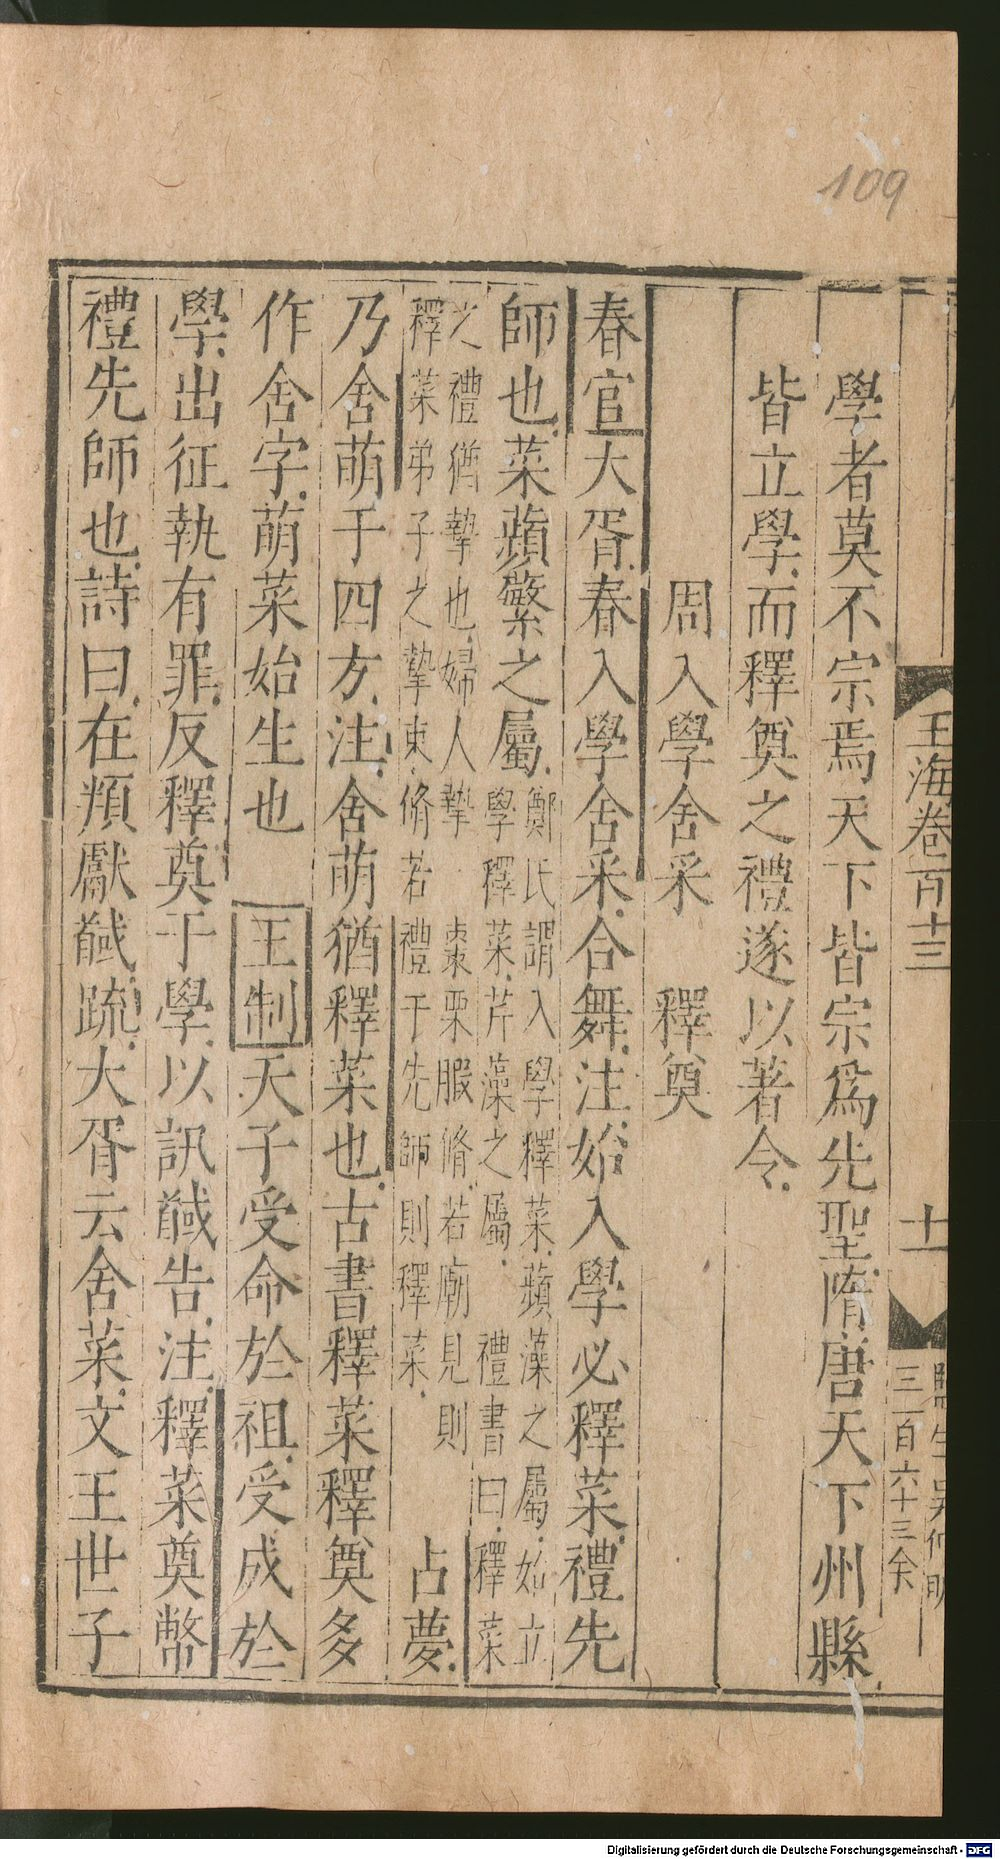 109
玉海卷百十三
十一
三百六十三余
學者莫不宗焉天下皆宗爲先聖隋唐天下州縣
皆立學而釋奠之禮遂以著令
周入學舍采　釋奠
春官大胥春入學舍采合舞注始入學必釋菜禮先
師也菜蘋蘩之屬
鄭氏謂入學釋菜蘋藻之屬如立
學釋菜芹藻之屬　禮書曰釋菜
之禮猶摯也婦人摯　棗栗服脩若廟見則
釋菜弟子之摯束脩若禮于先師則釋菜
占夢
乃舍萌于四方注舍萌猶釋菜也古書釋菜釋奠多
作舍字萌菜始生也　王制天子受命於祖受成於
學出征執有罪反釋奠于學以訊馘告注釋菜奠幣
禮先師也詩曰在頖獻馘疏大胥云舍菜文王世子
Digitalisierung gefördert durch die Deutsche Forschungsgemeinschaft - DFG